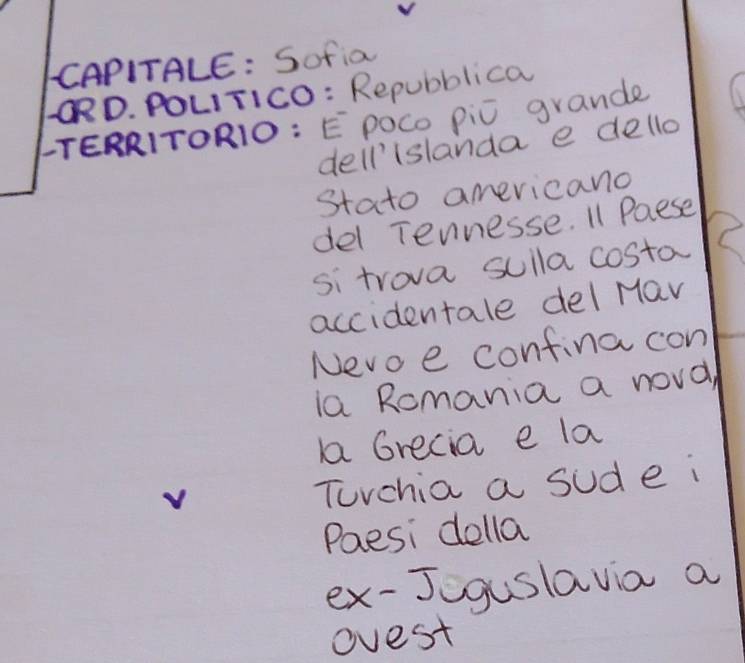 -CAPITALE: Sofia
-ORD. POLITICO: Repubblica
-TERRITORIO: È poco più grande
dell'Islanda e dello
Stato americano
del Tennesse. Il Paese
si trova sulla costa
accidentale del Mar
Nero e confina con
la Romania a nord,
la Grecia e la
Turchia a sud e i
Paesi della
ex-Juguslavia a
ovest